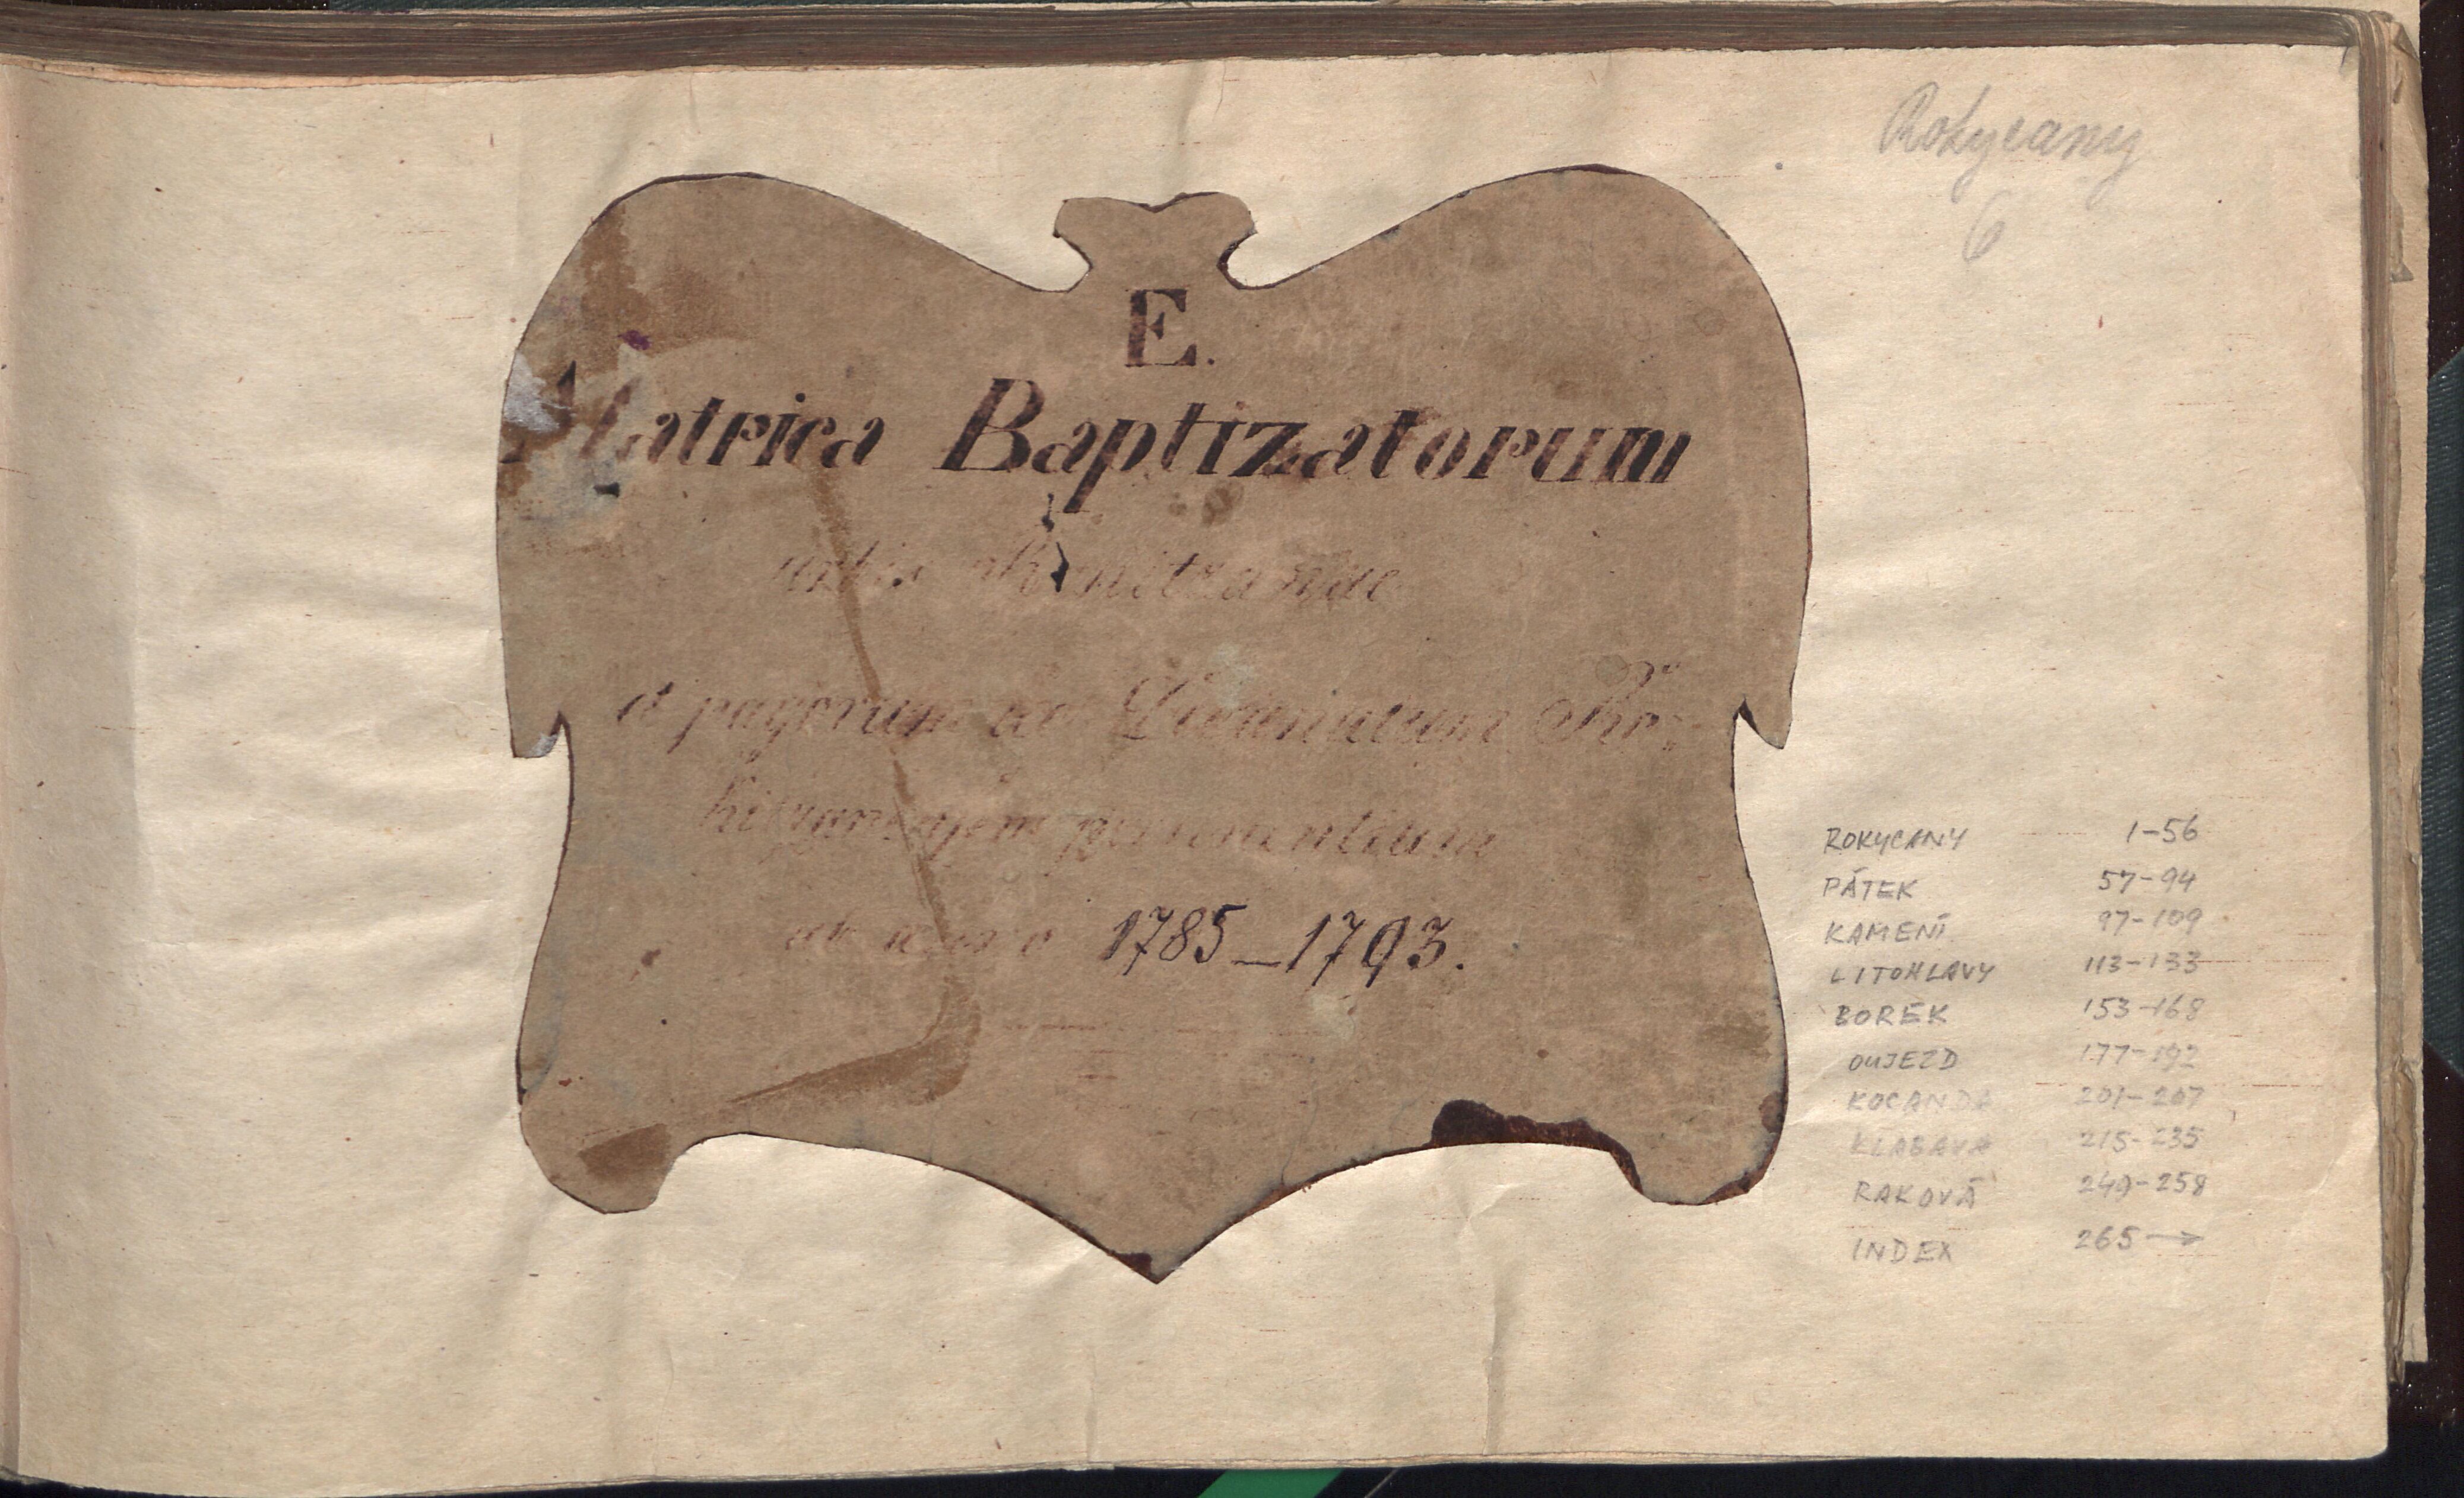 Rokycany
6
E.
Matrica Baptizatorum
urbis
et pagorum ad Decanatum Ro-
kizanensem pertinentium
ab anno 1785_1793.
ROKYCANY 1-56
PÁTEK 57-94
KAMENÍ 97-109
LITOHLAVY 113-133
BOREK 153-168
OUJEZD 177-192
KOCANDA 201-207
KLABAVA 215-235
RAKOVÁ 249-258
INDEX 265→